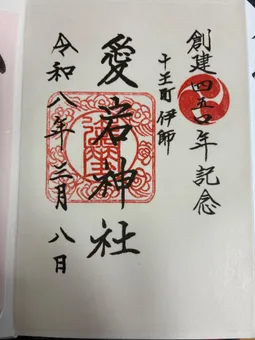 創建四五〇年記念
十王町 伊師
愛宕神社
令和八年二月八日